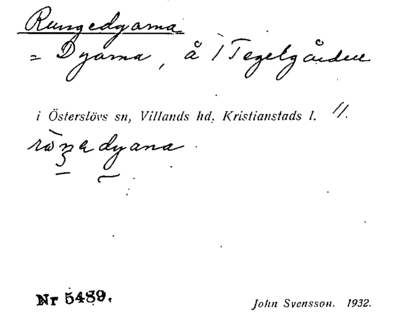 Rungedyarna
= Dyarna, å 1 Tegelgården
i Österslövs sn, Villands hd, Kristianstads l. 11.
Nr 5489.
John Svensson. 1932.